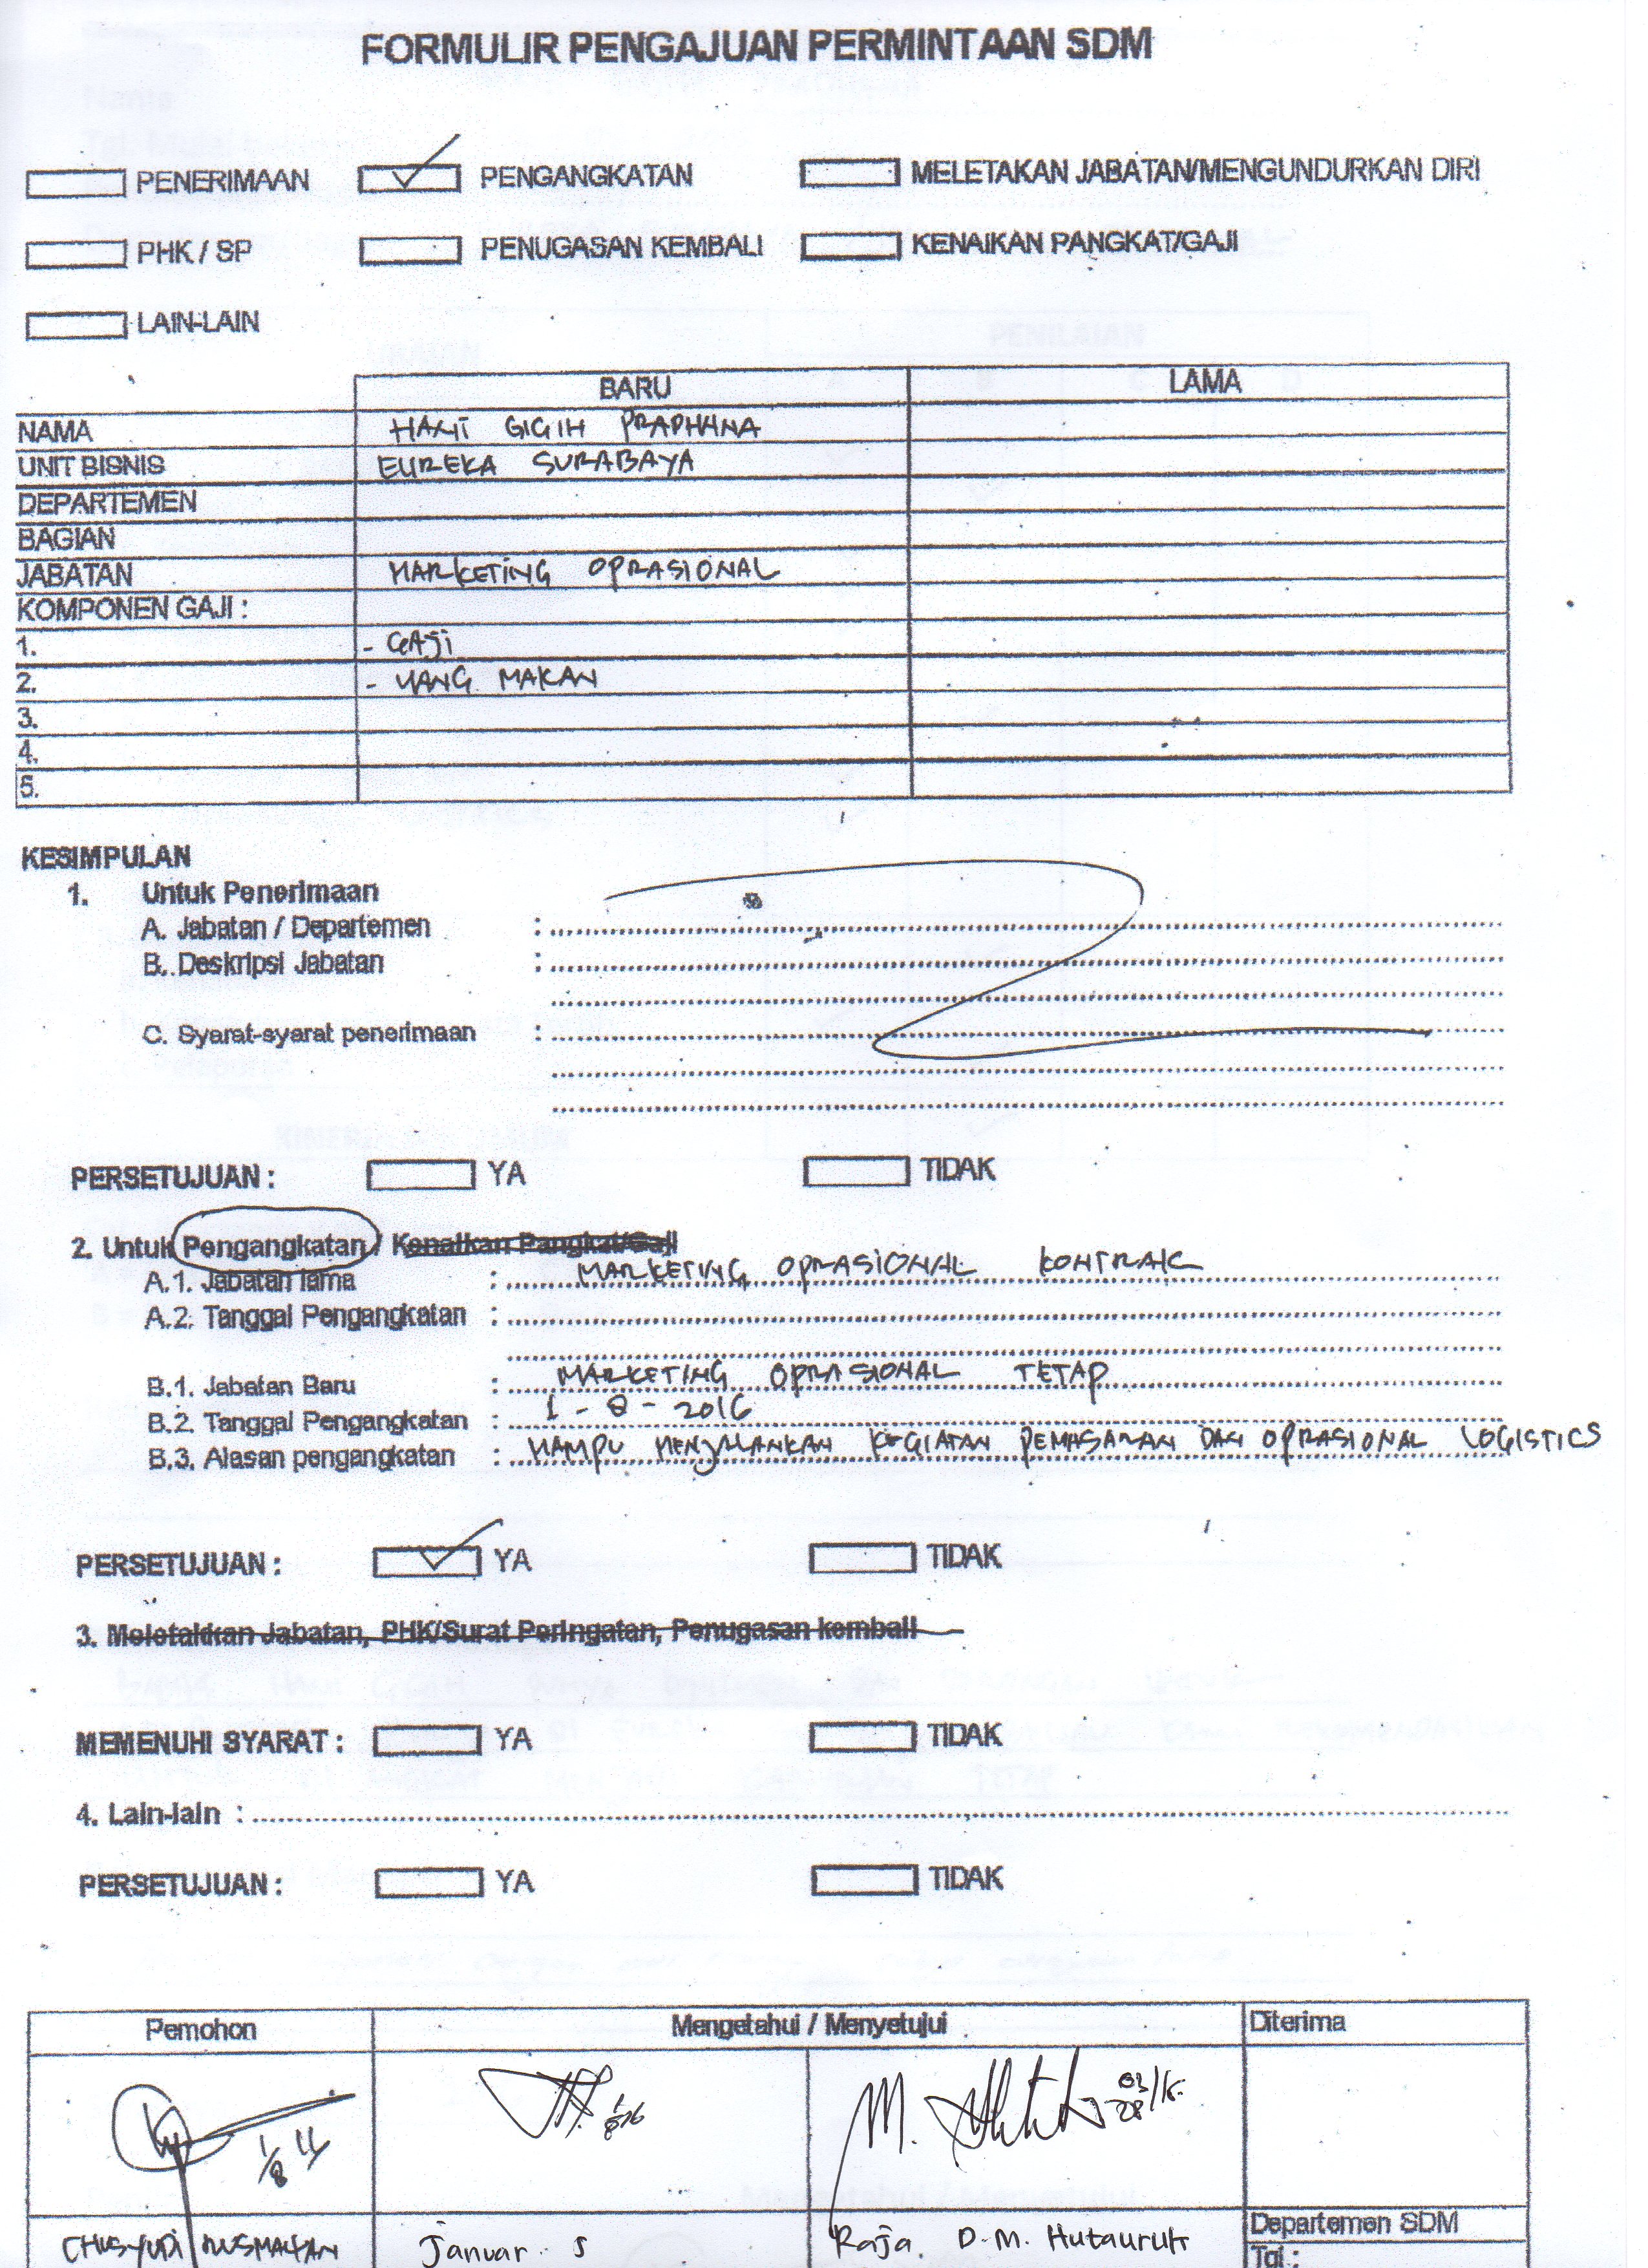 FORMULIR PENGAJUAN PERMINTAAN SDM
PENERIMAAN PENGANGKATAN MELETAKAN JABATAN/MENGUNDURKAN DIRI
PHK / SP PENUGASAN KEMBALI KENAIKAN PANGKAT/GAJI
LAIN-LAIN
BARU LAMA
NAMA GIGIH
UNIT BISNIS EUREKA SURABAYA
DEPARTEMEN
BAGIAN
JABATAN MARKETING OPRASIONAL
KOMPONEN GAJI :
1. - GAji
2. - UANG MAKAN
3.
4.
5.
KESIMPULAN
1. Untuk Penerimaan
A. Jabatan / Departemen :
B. Deskripsi Jabatan :
C. Syarat-syarat penerimaan :
PERSETUJUAN : YA TIDAK
2. Untuk Pengangkatan / Kenaikan Pangkat/Gaji
A.1. Jabatan lama : MARKETING OPRASIONAL KONTRAK
A.2. Tanggal Pengangkatan :
B.1. Jabatan Baru : MARKETING OPRASIONAL TETAP
B.2. Tanggal Pengangkatan : 1 - 8 - 2016
B.3. Alasan pengangkatan : MAMPU MENJALANKAN KEGIATAN PEMASARAN DAN OPRASIONAL LOGISTICS
PERSETUJUAN : YA TIDAK
3. Meletakkan Jabatan, PHK/Surat Peringatan, Penugasan kembali
MEMENUHI SYARAT : YA TIDAK
4. Lain-lain :
PERSETUJUAN : YA TIDAK
Pemohon Mengetahui / Menyetujui Diterima
Januar S Raja. D.M. Hutauruk Departemen SDM
Tgl :